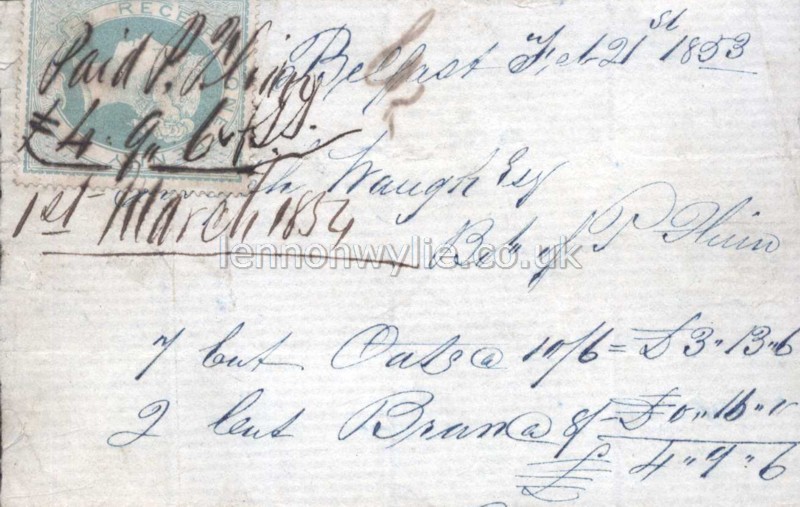 RECE
Belfast Feb 21st 1853
Paid P.
£4. 9. 6
Waugh Esq
1st March 1854
Bot of P
lennonwylie.co.uk
7 Cwt Oats @ 10/6 = £3" 13" 6
2 Cwt Bran @ 8/ = £0" 16" 0
£ 4" 9" 6